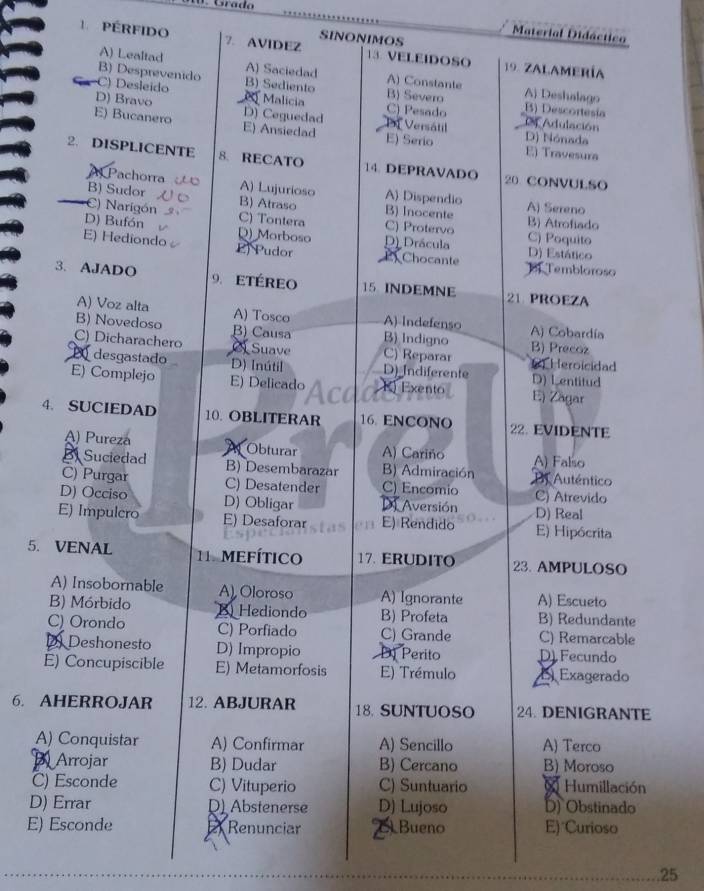 Grado
SINONIMOS
Material Didáctico
1. PÉRFIDO
A) Lealtad
B) Desprevenido
C) Desleído
D) Bravo
E) Bucanero
2. DISPLICENTE
A) Pachorra
B) Sudor
C) Narigón
D) Bufón
E) Hediondo
3. AJADO
A) Voz alta
B) Novedoso
C) Dicharachero
D) desgastado
E) Complejo
4. SUCIEDAD
A) Pureza
B) Suciedad
C) Purgar
D) Occiso
E) Impulcro
5. VENAL
A) Insobornable
B) Mórbido
C) Orondo
D) Deshonesto
E) Concupiscible
6. AHERROJAR
A) Conquistar
B) Arrojar
C) Esconde
D) Errar
E) Esconde
7. AVIDEZ
A) Saciedad
B) Sediento
C) Malicia
D) Ceguedad
E) Ansiedad
8. RECATO
A) Lujurioso
B) Atraso
C) Tontera
D) Morboso
E) Pudor
9. ETÉREO
A) Tosco
B) Causa
C) Suave
D) Inútil
E) Delicado
10. OBLITERAR
A) Obturar
B) Desembarazar
C) Desatender
D) Obligar
E) Desaforar
11. MEFÍTICO
A) Oloroso
B) Hediondo
C) Porfiado
D) Impropio
E) Metamorfosis
12. ABJURAR
A) Confirmar
B) Dudar
C) Vituperio
D) Abstenerse
E) Renunciar
13. VELEIDOSO
A) Constante
B) Severo
C) Pesado
D) Versátil
E) Serio
14. DEPRAVADO
A) Dispendio
B) Inocente
C) Protervo
D) Drácula
E) Chocante
15. INDEMNE
A) Indefenso
B) Indigno
C) Reparar
D) Indiferente
E) Exento
16. ENCONO
A) Cariño
B) Admiración
C) Encomio
D) Aversión
E) Rendido
17. ERUDITO
A) Ignorante
B) Profeta
C) Grande
D) Perito
E) Trémulo
18. SUNTUOSO
A) Sencillo
B) Cercano
C) Suntuario
D) Lujoso
E) Bueno
19. ZALAMERÍA
A) Deshalago
B) Descortesía
C) Adulación
D) Nónada
E) Travesura
20. CONVULSO
A) Sereno
B) Atrofiado
C) Poquito
D) Estático
E) Tembloroso
21. PROEZA
A) Cobardía
B) Precoz
C) Heroicidad
D) Lentitud
E) Zagar
22. EVIDENTE
A) Falso
B) Auténtico
C) Atrevido
D) Real
E) Hipócrita
23. AMPULOSO
A) Escueto
B) Redundante
C) Remarcable
D) Fecundo
E) Exagerado
24. DENIGRANTE
A) Terco
B) Moroso
C) Humillación
D) Obstinado
E) Curioso
25